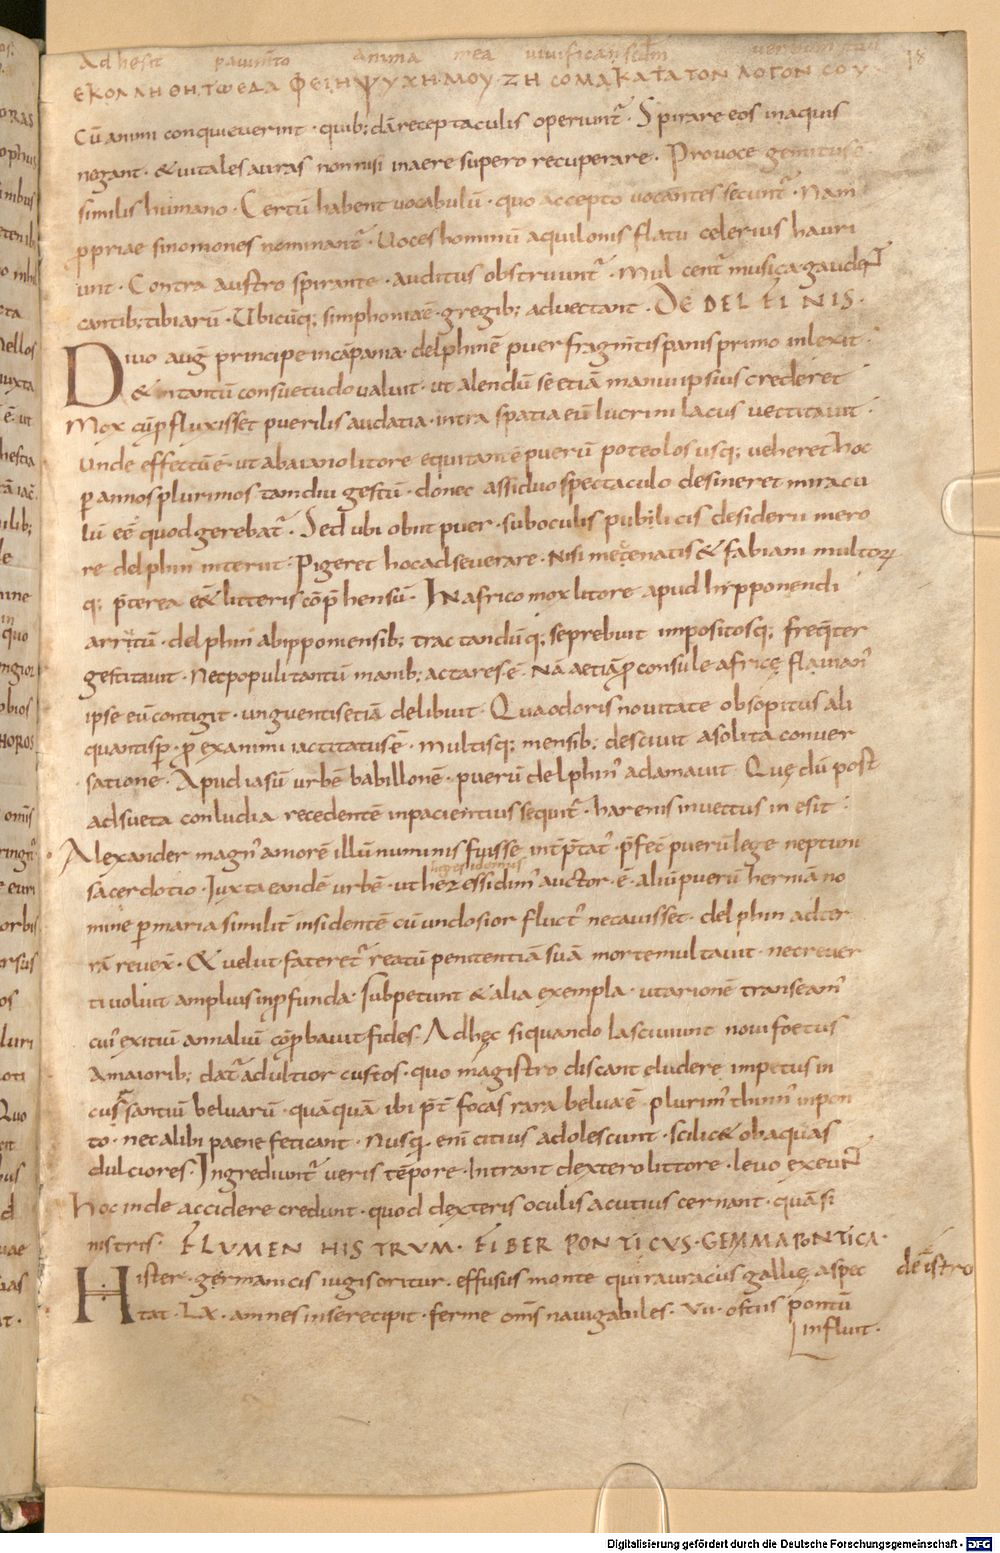 Adhesit pavim̄to anima mea vivifica me scd̄m verbum tuū
18
ΕΚΟΛΛΗΘΗ ΤѠ ΕΔΑΦΕΙ Η ΨΥΧΗ ΜΟΥ · ΖΗCΟΜΑ ΚΑΤΑ ΤΟΝ ΛΟΓΟΝ CΟΥ
Cū animi conquieverint · quib; dā receptaculis operiunt̄ · Spirare eos inaquis
negant · & vitales auras nonnisi inaere supero recuperare · Pro voce gemitus ē
similis humano · Certū habent vocabulū · quo accepto vocantes secunt̄ · Nam
p̱priae sinomones nominant̄ · Voces hominū aquilonis flatu celerius hauri
unt · Contra austro spirante · auditus obstruunt̄ · Mulcent̄ musica · gaudent̄
cantib; tibiarū · Ubicūq; simphoniae · gregib; adventant · DE DELFINIS ·
Divo auḡ principe incāpania · delphinē puer fragm̄tis panis primo inlexit ·
& intantū consuetudo valuit · ut alendū se etiā manui ipsius crederet
Mox cū p̱fluxisset puerilis audatia · intra spatia eū lucrini lacus vectitavit ·
Unde effectū ē · ut abaiano litore equitantē puerū poteolos usq; veheret hoc
p̱ annos plurimos tamdiu gestū · donec assiduo spectaculo desineret miracu
lū eē quod gerebat̄ · Sed ubi obiit puer · sub oculis publicis desiderii mero
re delphin interiit · Pigeret hoc adseverare · nisi mecenatis & fabiani multorꝝ
q; p̄terea eēt litteris cōp̄hensū · In africo mox litore apud hypponendi
arritū · delphin abipponiensib; tractandūq; se prebuit impositosq; freq̄nter
gestitavit · Nec populi tantū manib; acta res · ē · Nā & etiā p̱consule africę flavian'
ipse eū contigit · unguentis etiā delibuit · Qua odoris novitate obsopitus ali
quantisp̱ · p̱ exanimi iactitatus ē · multisq; mensib; descivit a solita conver
satione · Apud iasū urbē babillonē · puerū delphin' adamavit · Quę dū post
adsueta conludia recedentē inpacientius sequit̄ · harenis invectus inhesit :
Alexander magn' amorē illū numinis fuisse int̄p̄tat' · p̄fec̄ puerū lege neptuni
sacerdotio · Iuxta eandē urbē · ut hegesidemus
auctor · ē · aliū puerū hermiā no
mine p̱ maria similit̄ insidentē cū undosior fluct' necavisset · delphin adter
rā revex̄ · & velut fateret̄ reatū penitentiā suā morte multavit · nec rever
ti voluit amplius inp̱funda · Suppetunt & alia exempla · ut arionē transeam'
cui' exitiū annaliū cōp̱bavit fides · Adhęc si quando lasciviunt novi foetus
A maiorib; dat̄ adultior custos · quo magistro discant eludere impetus in
cursantiū beluarū · quāquā ibi p̄t̄ focas rara belua ē · plurim' thinn' in pon
to · nec alibi paene feticant · Nusq̄ enī citius adolescunt · scilic& ob aquas
dulciores · Ingrediunt̄ veris tēpore · Intrant dextero littore · levo exeunt̄
hoc inde accidere credunt · quod dexteris oculis acutius cernant · quā si
nistris · FLUMEN HISTRUM · FIBER PONTICUS · GEMMA PONTICA ·
Hister · germanicis iugis oritur · effusus monte qui rauracus gallię aspec
tat · LX · amnes in se recipit · ferme om̄s navigabiles · VII · ostiis pontū
influit ·
de istro
Digitalisierung gefördert durch die Deutsche Forschungsgemeinschaft - DFG